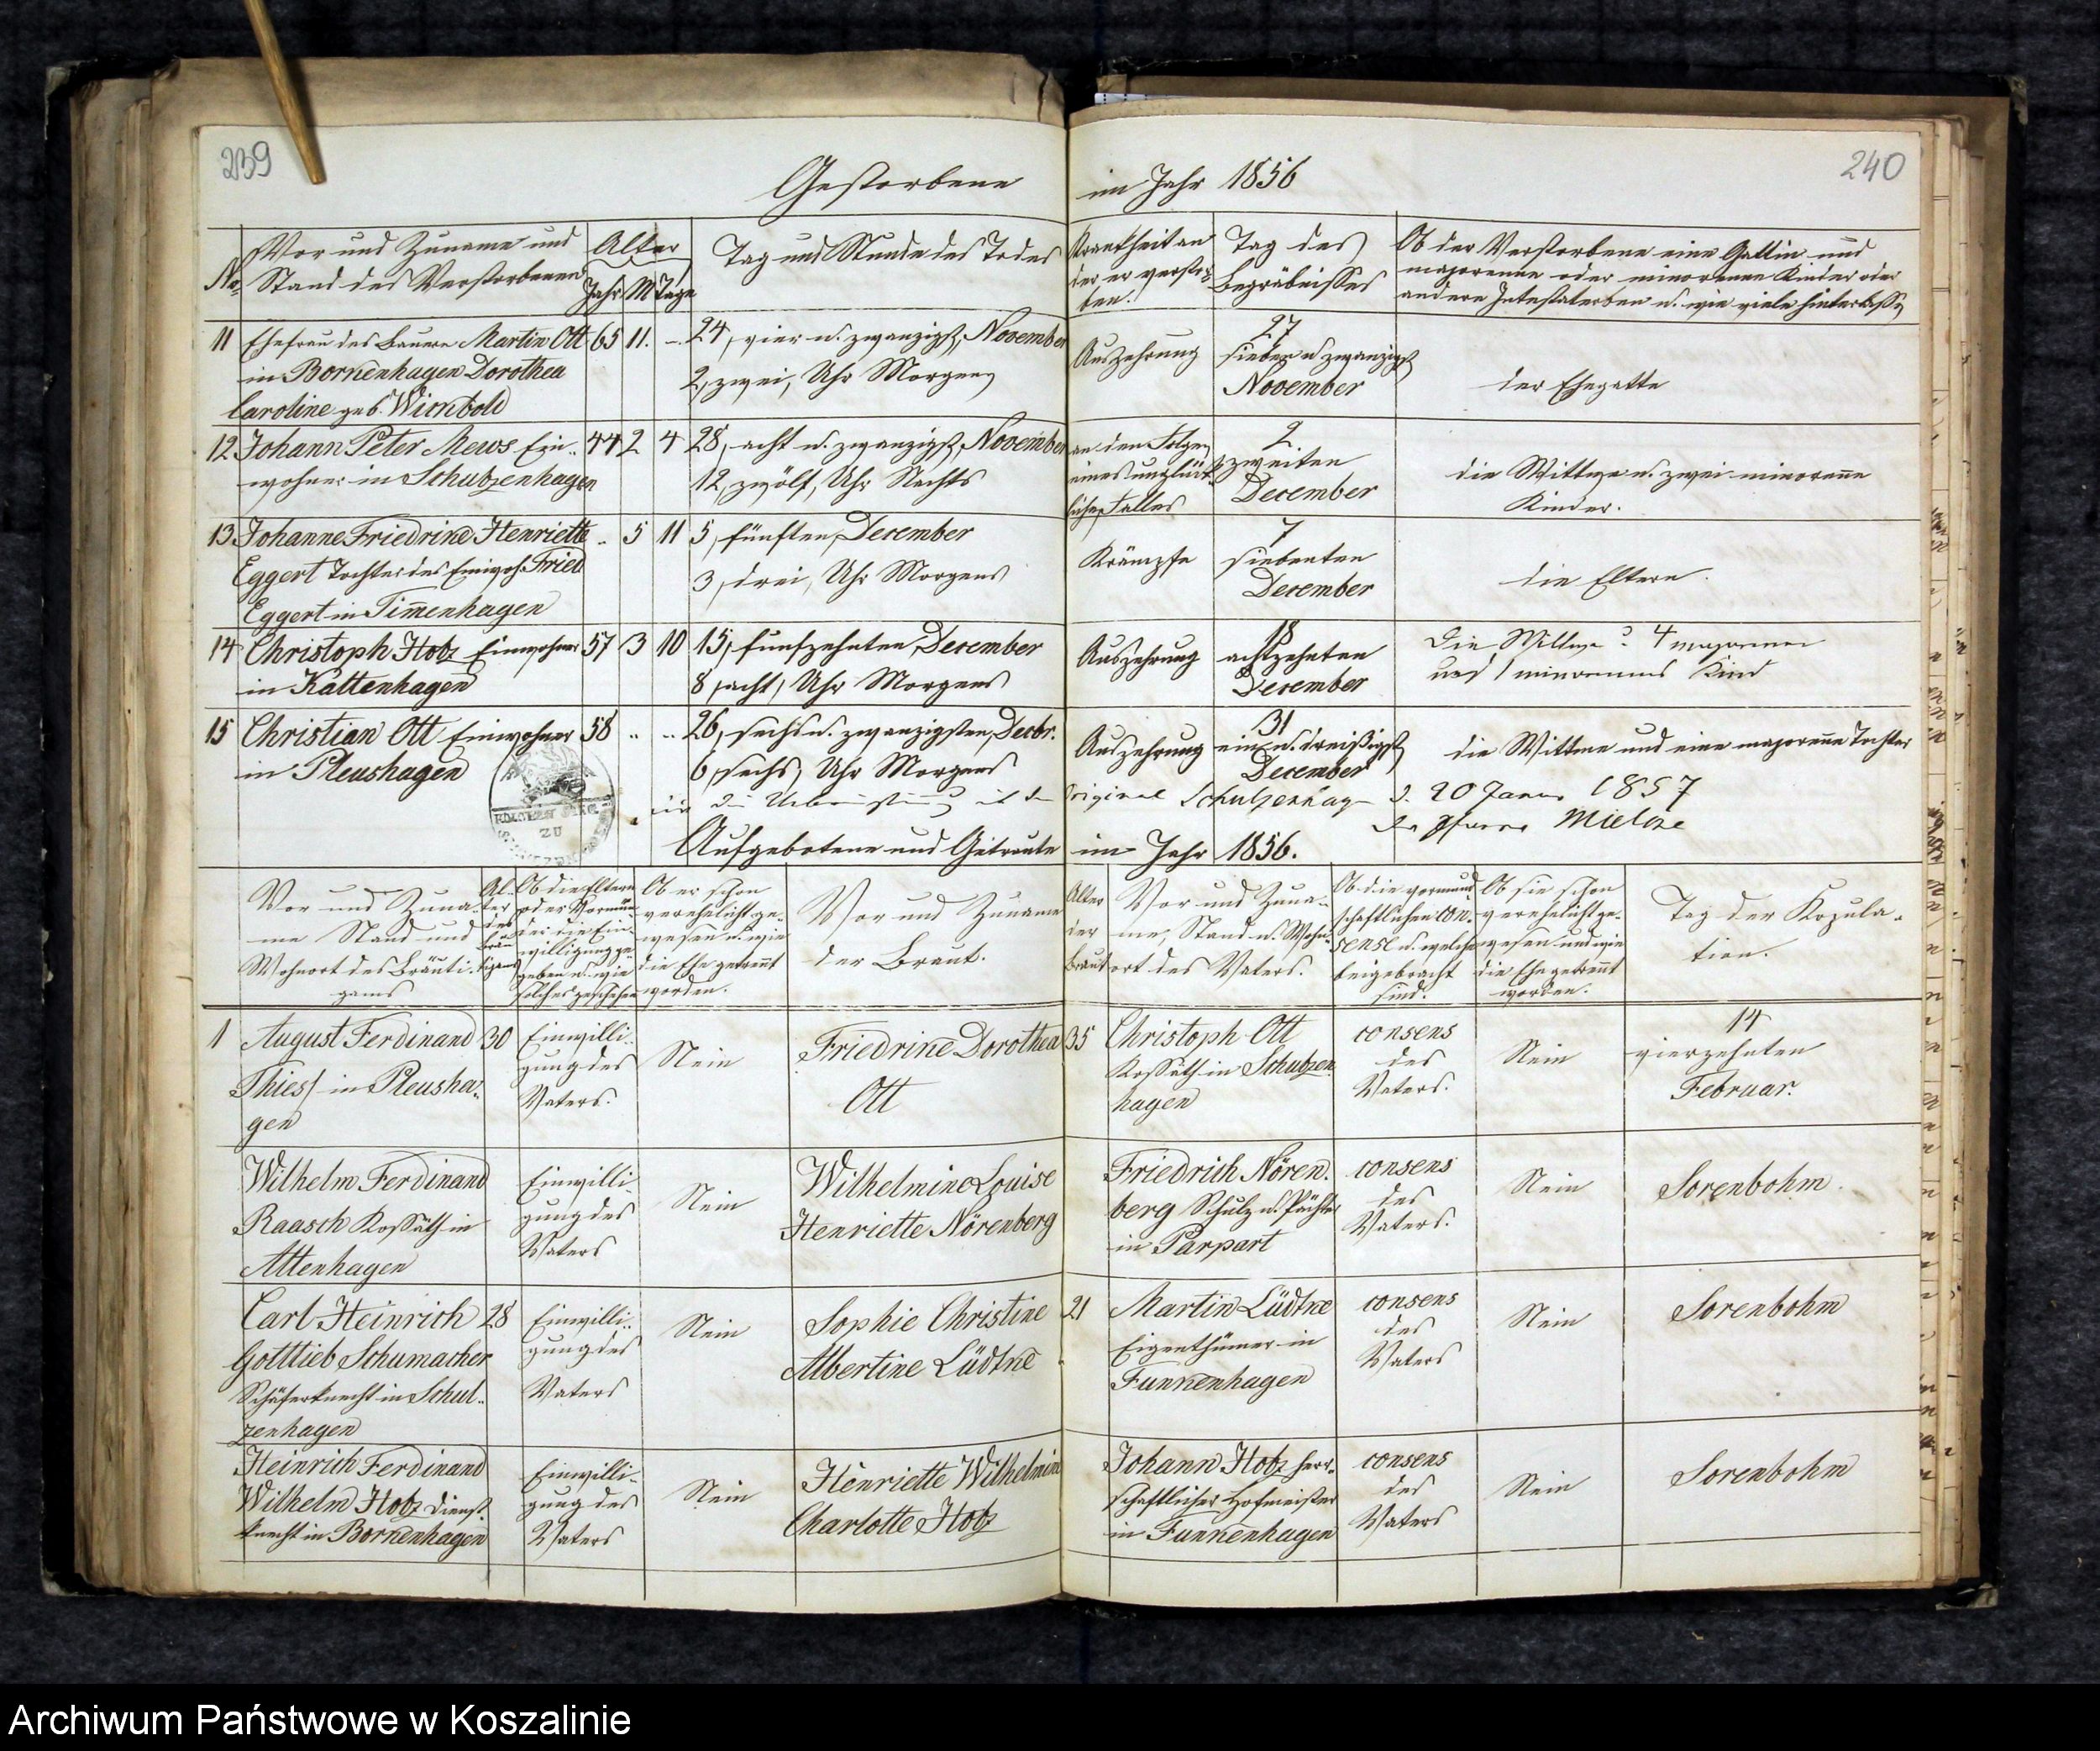 239
240
Gestorbene im Jahr 1856
No
Vor und Zuname und
Stand des Verstorbenen
Alter
Jahr M Tage
Tag und Stunde des Todes
Krankheit an
der er verstor-
ben.
Tag des
Begräbnisses
Ob der Verstorbene eine Gattin und
majorenne oder minorenne Kinder oder
andere Intestaterben u. wie viele hinterlass
11 Ehefrau des Bauern Martin Ott
in Borkenhagen Dorothea
Caroline geb.
65 11. -
24, vier u. zwanzigst, November
2, zwei, Uhr Morgens
Auszehrung
27
sieben u zwanzigst
November
der Ehegatte
12 Johann Peter Mews Ein-
wohner in Schulzenhagen
44 2 4
28, acht u. zwanzigst, November
12, zwölf, Uhr Nachts
an den Folgen
eines unglück-
lichen Falles
2
zweiten
December
die Wittwe u. zwei minorenne
Kinder.
13 Johanne Friedrike Henriette
Eggert Tochter des Einwoh. Fried
Eggert in Timenhagen
„ 5 11
5, fünften, December
3, drei, Uhr Morgens
Krämpfe
7
siebenten
December
die Eltern.
14 Christoph Hotz Einwohner
in Kaltenhagen
57 3 10
15, fünfzehnten, December
8, acht, Uhr Morgens
Auszehrung
18
achtzehnten
December
Die Wittwe u 4 majorenne
und 1 minorennes Kind
15 Christian Ott Einwohner
in Pleushagen
58 „ „
26, sechs u. zwanzigsten, Decbr.
6, sechs, Uhr Morgens
Auszehrung
31
ein u. dreißigst
December
die Wittwe und eine majorenne Tochter
ZU
Original Schulzenhagen d. 20 Januar 1857
Der Pfarrer Mielke
Aufgebotene und Getraute im Jahr 1856.
Vor und Zuna-
me Stand und
Wohnort des Bräuti-
gams
Al-
ter
des
Bräu-
tigams
Ob die Eltern
oder Vormün-
der die Ein-
willigung ge-
geben u. wie
solches geschehen
Ob er schon
verehelicht ge-
wesen u. wie
die Ehe getrennt
worden.
Vor und Zuname
der Braut.
Alter
der
Braut
Vor und Zuna-
me, Stand u. Wohn-
ort des Vaters.
Ob die vormund-
schaftlichen Con-
sense u. welche
beigebracht
sind.
Ob sie schon
verehelicht ge-
wesen und wie
die Ehe getrennt
worden.
Tag der Kopula-
tion.
1 August Ferdinand
Thiess in Pleusha-
gen
30
Einwilli-
gung des
Vaters.
Nein
Friedrike Dorothea
Ott
35
Christoph Ott
Kossäth in Schulzen
hagen
consens
des
Vaters.
Nein
14
vierzehnten
Februar.
Wilhelm Ferdinand
Raasch Kossäth in
Altenhagen
Einwilli-
gung des
Vaters
Nein
Wilhelmine Louise
Henriette Nörenberg
Friedrich Nören-
berg Schulz u. Pächter
in Parpart
consens
des
Vaters.
Nein
Sorenbohm.
Carl Heinrich
Gottlieb Schumacher
Schäferknecht in Schul-
zenhagen
28
Einwilli-
gung des
Vaters
Nein
Sophie Christine
Albertine Lüdtke
21
Martin Lüdtke
Eigenthümer in
Funkenhagen
consens
des
Vaters
Nein
Sorenbohm
Heinrich Ferdinand
Wilhelm Hotz Dienst-
knecht in Borkenhagen
Einwilli-
gung des
Vaters
Nein
Henriette Wilhelmine
Charlotte Hotz
Johann Hotz herr-
schaftlicher Hofmeister
in Funkenhagen
consens
des
Vaters
Nein
Sorenbohm
Archiwum Państwowe w Koszalinie